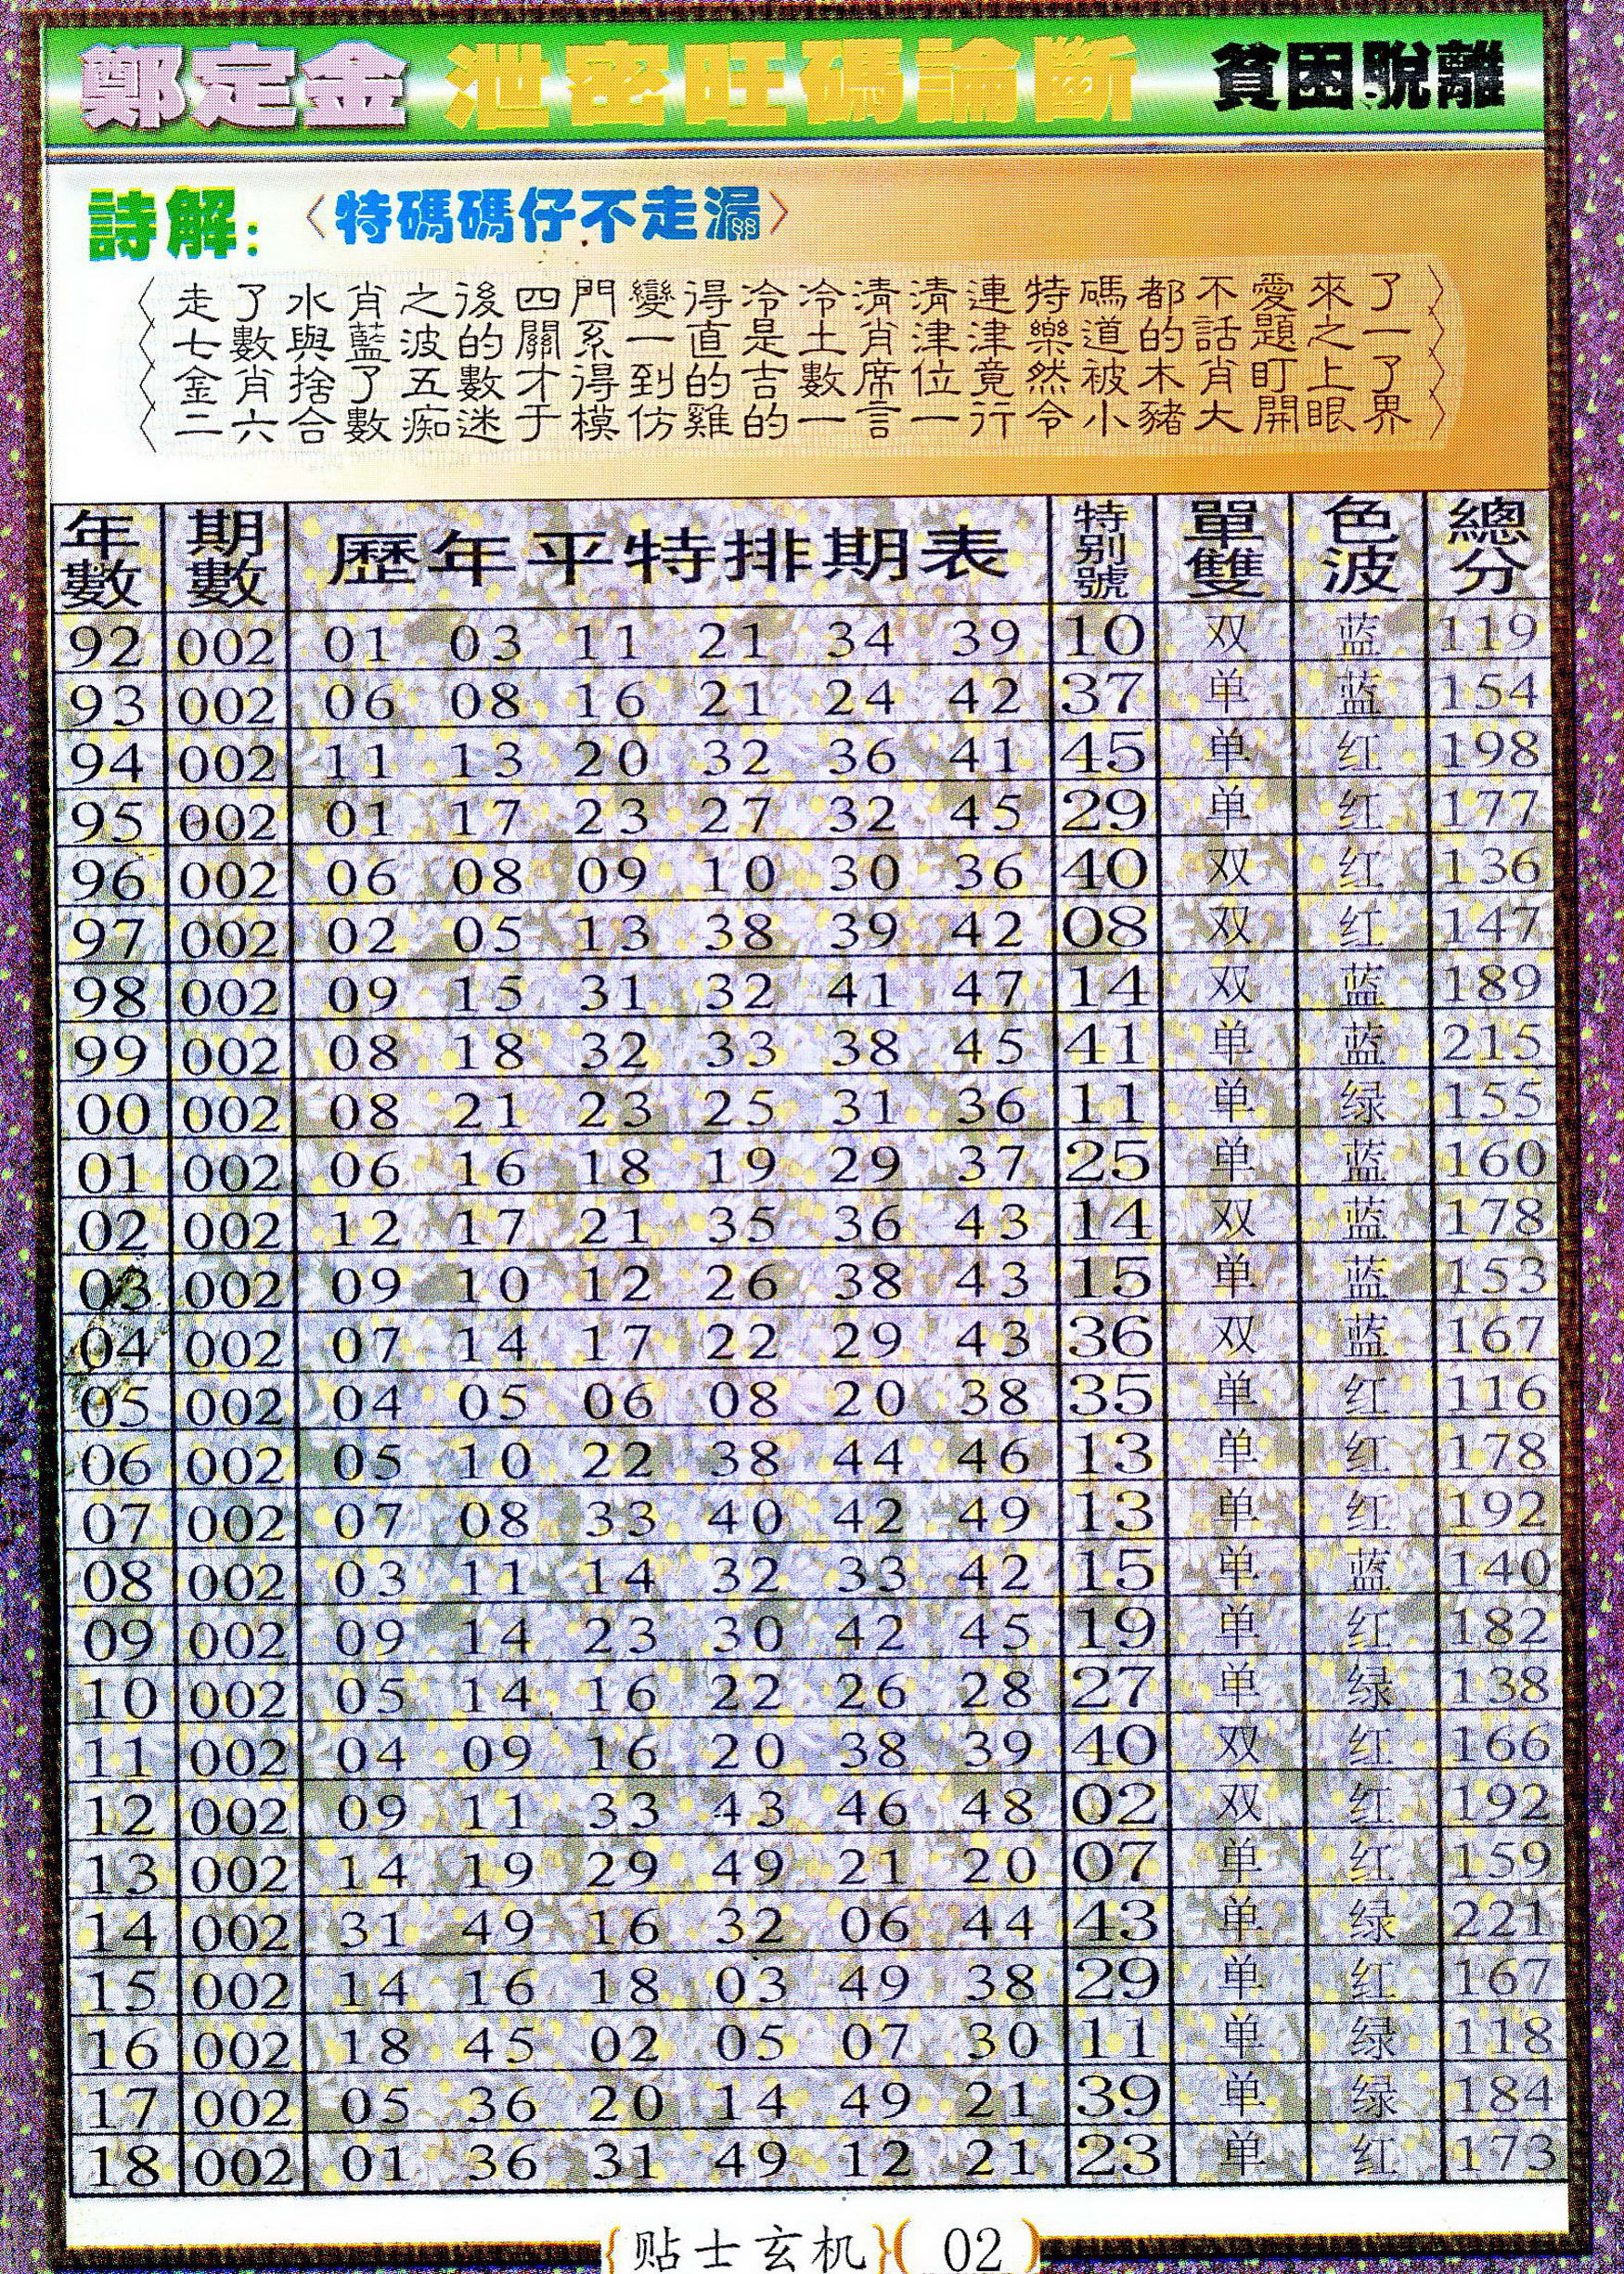 鄭定金 泄密旺碼論斷 貧困脫離
詩解: 〈特碼碼仔不走漏〉
走了水肖之後四門變得冷冷清清連特碼都不愛來了
七數與藍波的關系一直是土肖津津樂道的話題之一
金肖捨了五數才得到的吉數席位竟然被木肖盯上了
二六合數痴迷于模仿雞的一言一行令小豬大開眼界
年數 期數 歷年平特排期表 特别號 單雙 色波 總分
92 002 01 03 11 21 34 39 10 双 蓝 119
93 002 06 08 16 21 24 42 37 单 蓝 154
94 002 11 13 20 32 36 41 45 单 红 198
95 002 01 17 23 27 32 45 29 单 红 177
96 002 06 08 09 10 30 36 40 双 红 136
97 002 02 05 13 38 39 42 08 双 红 147
98 002 09 15 31 32 41 47 14 双 蓝 189
99 002 08 18 32 33 38 45 41 单 蓝 215
00 002 08 21 23 25 31 36 11 单 绿 155
01 002 06 16 18 19 29 37 25 单 蓝 160
02 002 12 17 21 35 36 43 14 双 蓝 178
03 002 09 10 12 26 38 43 15 单 蓝 153
04 002 07 14 17 22 29 43 36 双 蓝 167
05 002 04 05 06 08 20 38 35 单 红 116
06 002 05 10 22 38 44 46 13 单 红 178
07 002 07 08 33 40 42 49 13 单 红 192
08 002 03 11 14 32 33 42 15 单 蓝 140
09 002 09 14 23 30 42 45 19 单 红 182
10 002 05 14 16 22 26 28 27 单 绿 138
11 002 04 09 16 20 38 39 40 双 红 166
12 002 09 11 33 43 46 48 02 双 红 192
13 002 14 19 29 49 21 20 07 单 红 159
14 002 31 49 16 32 06 44 43 单 绿 221
15 002 14 16 18 03 49 38 29 单 红 167
16 002 18 45 02 05 07 30 11 单 绿 118
17 002 05 36 20 14 49 21 39 单 绿 184
18 002 01 36 31 49 12 21 23 单 红 173
{贴士玄机}( 02 )